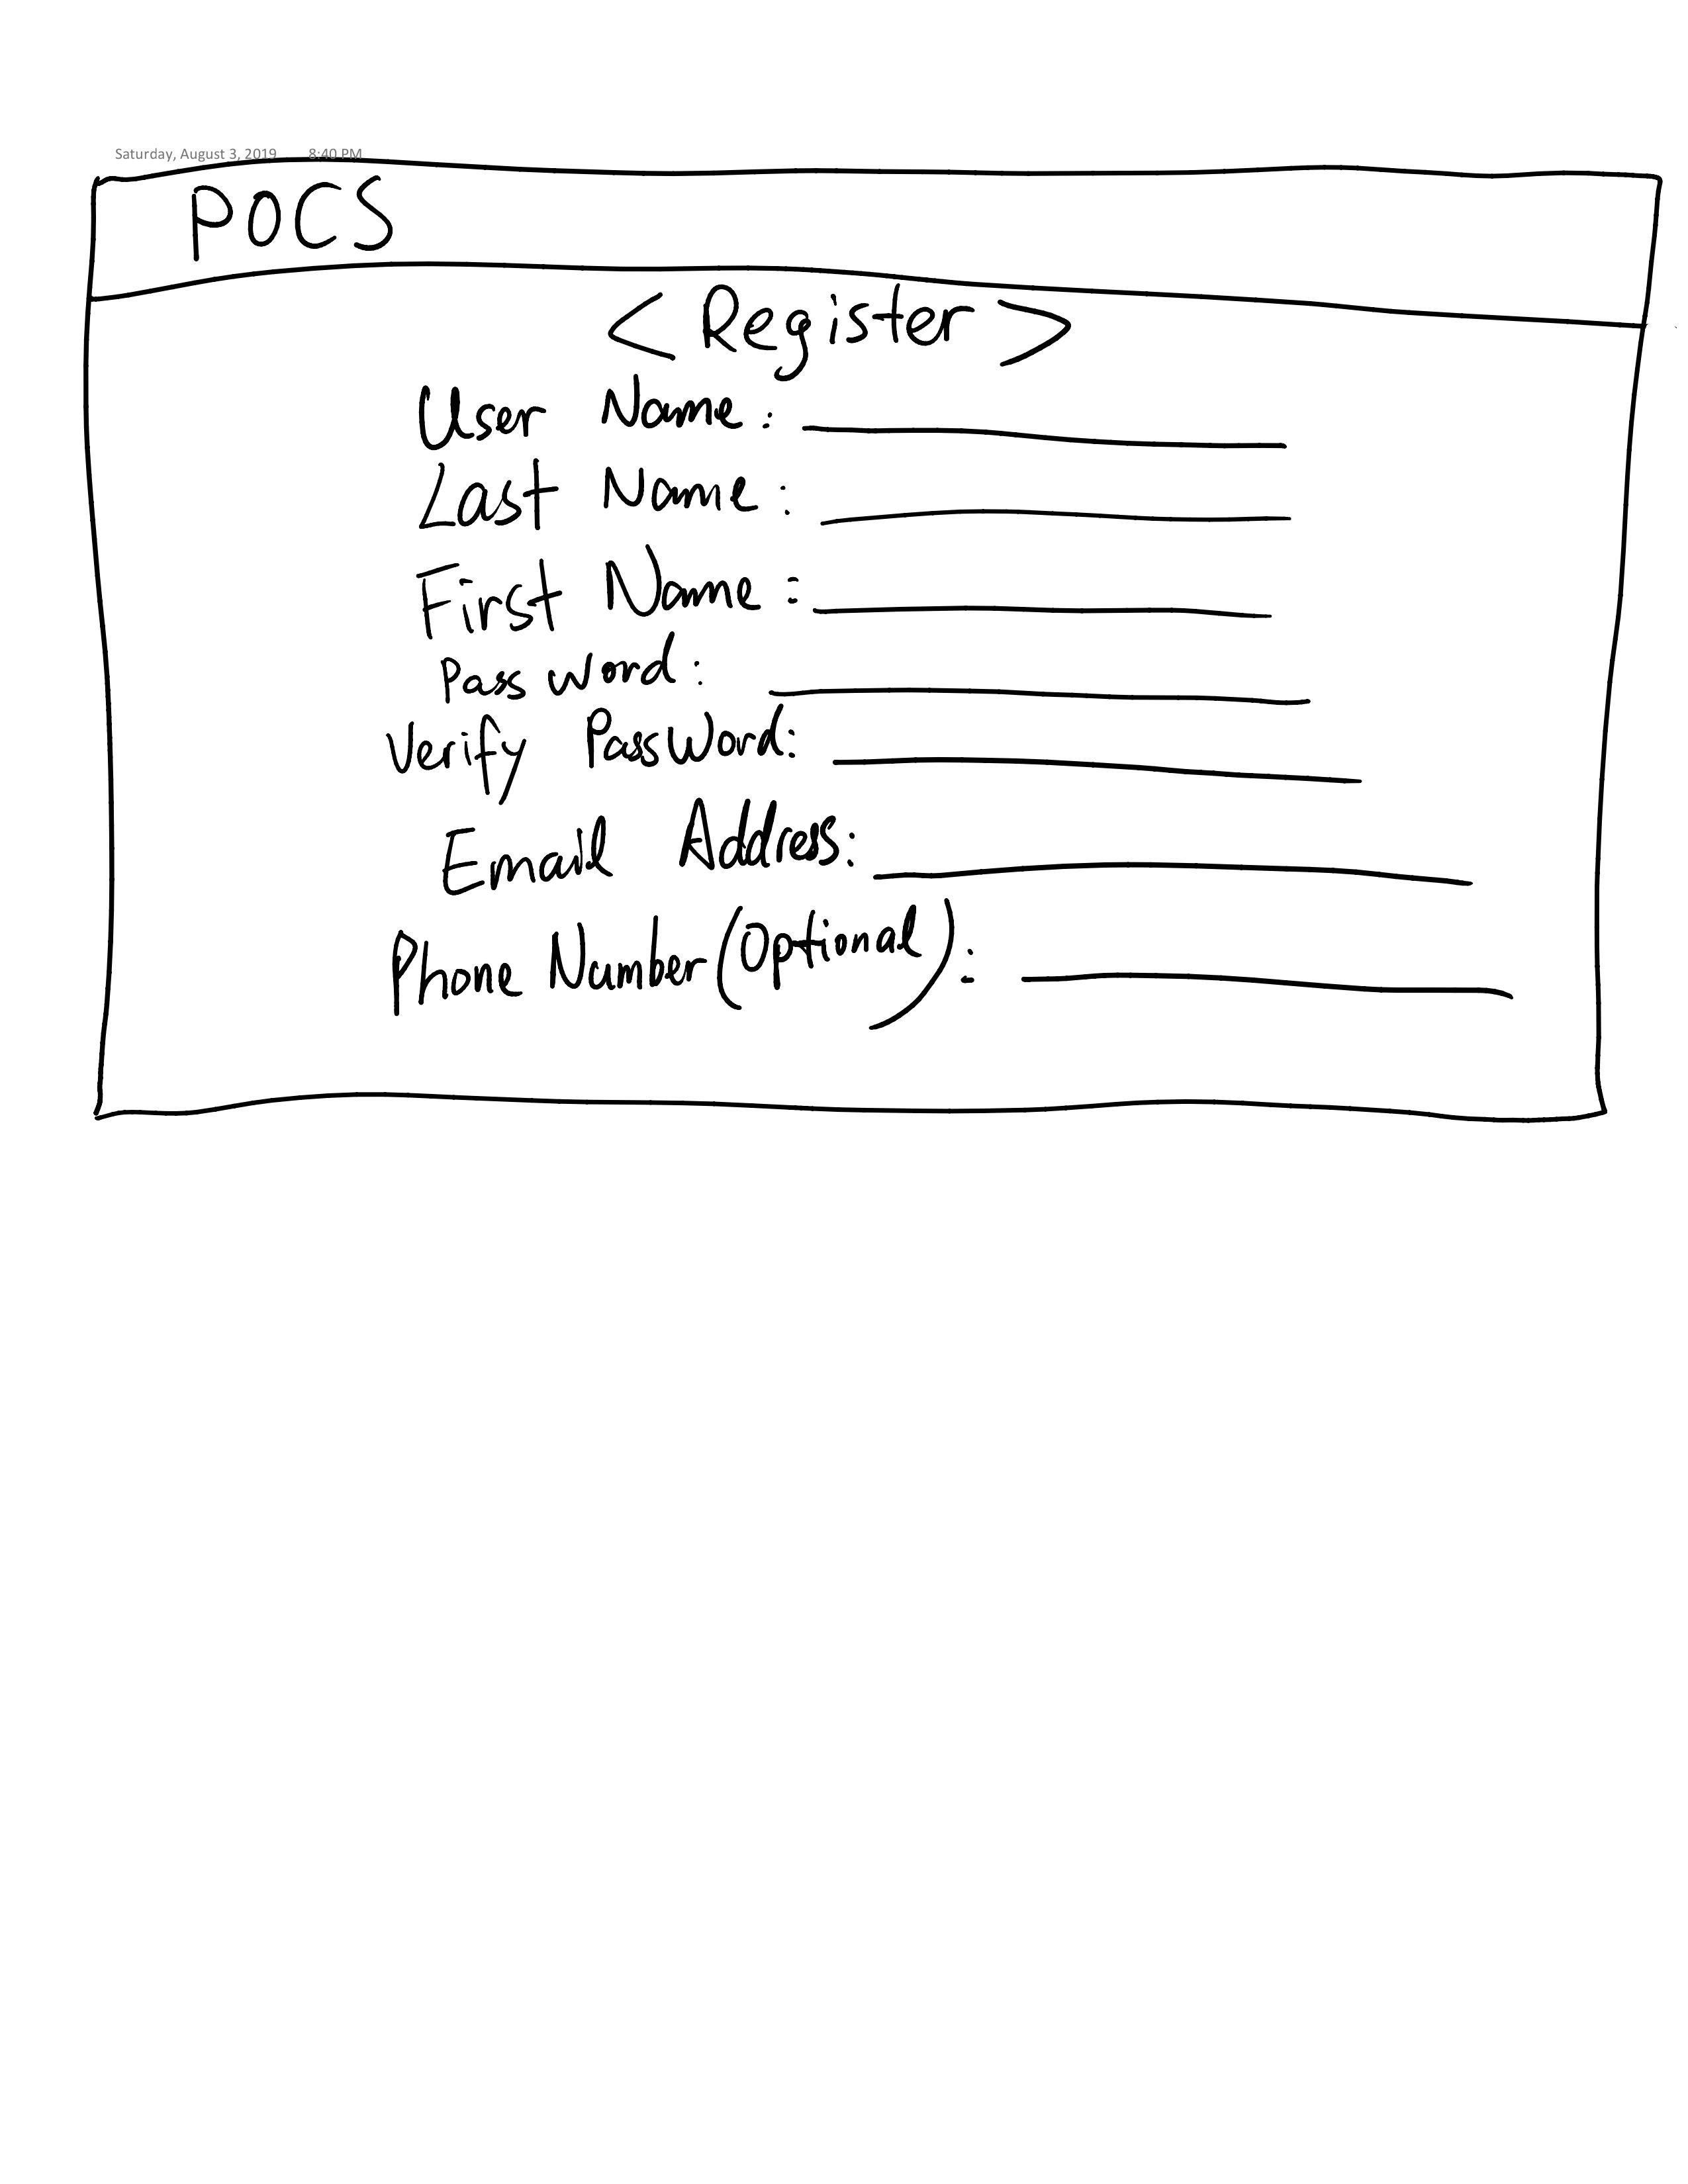 Saturday, August 3, 2019 8:40 PM
POCS
<Register>
User Name:
Last Name:
First Name:
PassWord:
Verify PassWord:
Email Address:
Phone Number(Optional):